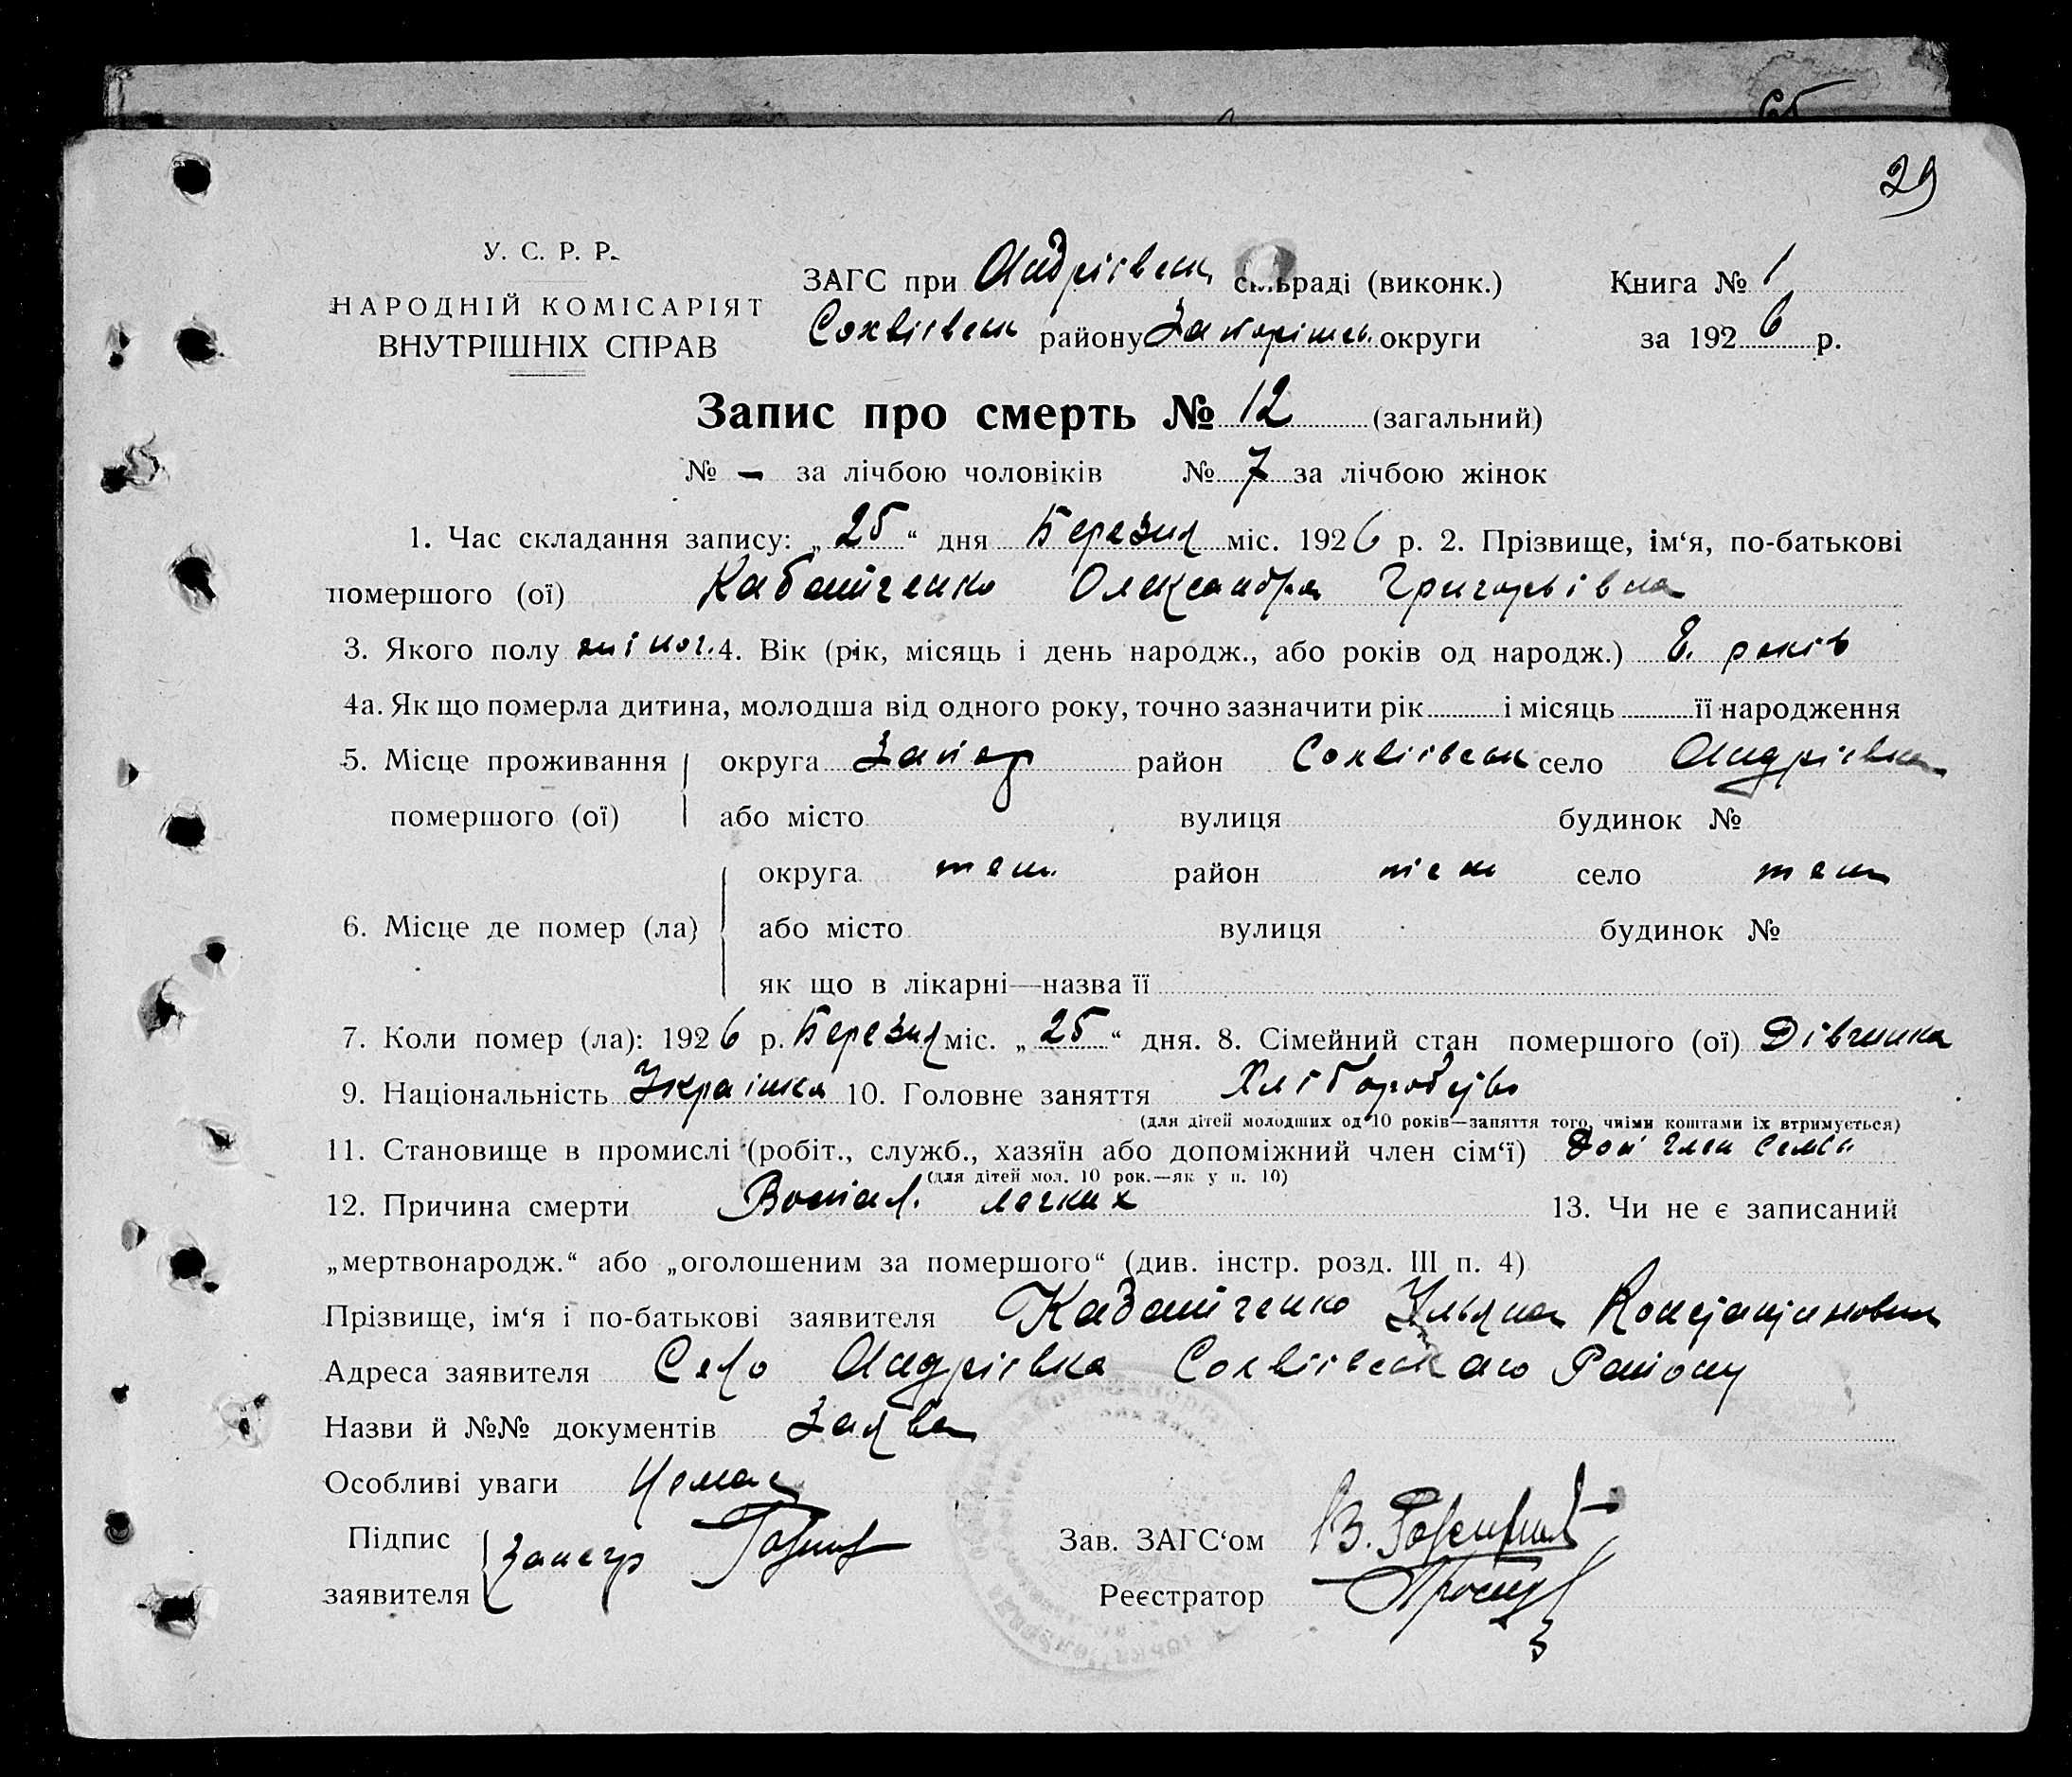 29
У. С. Р. Р.
НАРОДНІЙ КОМІСАРІЯТ
ВНУТРІШНІХ СПРАВ
ЗАГС при Андріївськ сільраді (виконк.)
Софіївськ району Запоріжськ округи
Книга № 1
за 1926 р.
Запис про смерть № 12 (загальний)
№ - за лічбою чоловіків № 7 за лічбою жінок
1. Час складання запису: „25“ дня Березня міс. 1926 р. 2. Прізвище, ім‘я, по-батькові
помершого (ої) Кабатченко Олександра Григорьівна
3. Якого полу жіноч. 4. Вік (рік, місяць і день народж., або років од народж.) 8. років
4а. Як що померла дитина, молодша від одного року, точно зазначити рік і місяць її народження
5. Місце проживання помершого (ої) округа Запор район Софіівськ село Андріівка
або місто вулиця будинок №
6. Місце де помер (ла) округа теж район теж село теж
або місто вулиця будинок №
як що в лікарні—назва її
7. Коли помер (ла): 1926 р. Березня міс. „25“ дня. 8. Сімейний стан помершого (ої) Дівчинка
9. Національність Українка 10. Головне заняття Хліборобство
(для дітей молодших од 10 років—заняття того, чиїми коштами їх втримується)
11. Становище в промислі (робіт., служб., хазяїн або допоміжний член сім‘ї) Доп член семьи
(для дітей мол. 10 рок.—як у п. 10)
12. Причина смерти Воспал. легких 13. Чи не є записаний
„мертвонародж.“ або „оголошеним за помершого“ (див. інстр. розд. III п. 4)
Прізвище, ім‘я і по-батькові заявителя Кабатченко Ульяна
Адреса заявителя Село Андріівка Софіівського Району
Назви й №№ документів Заява
Особливі уваги Немає
Підпис заявителя
Зав. ЗАГС‘ом
Реєстратор